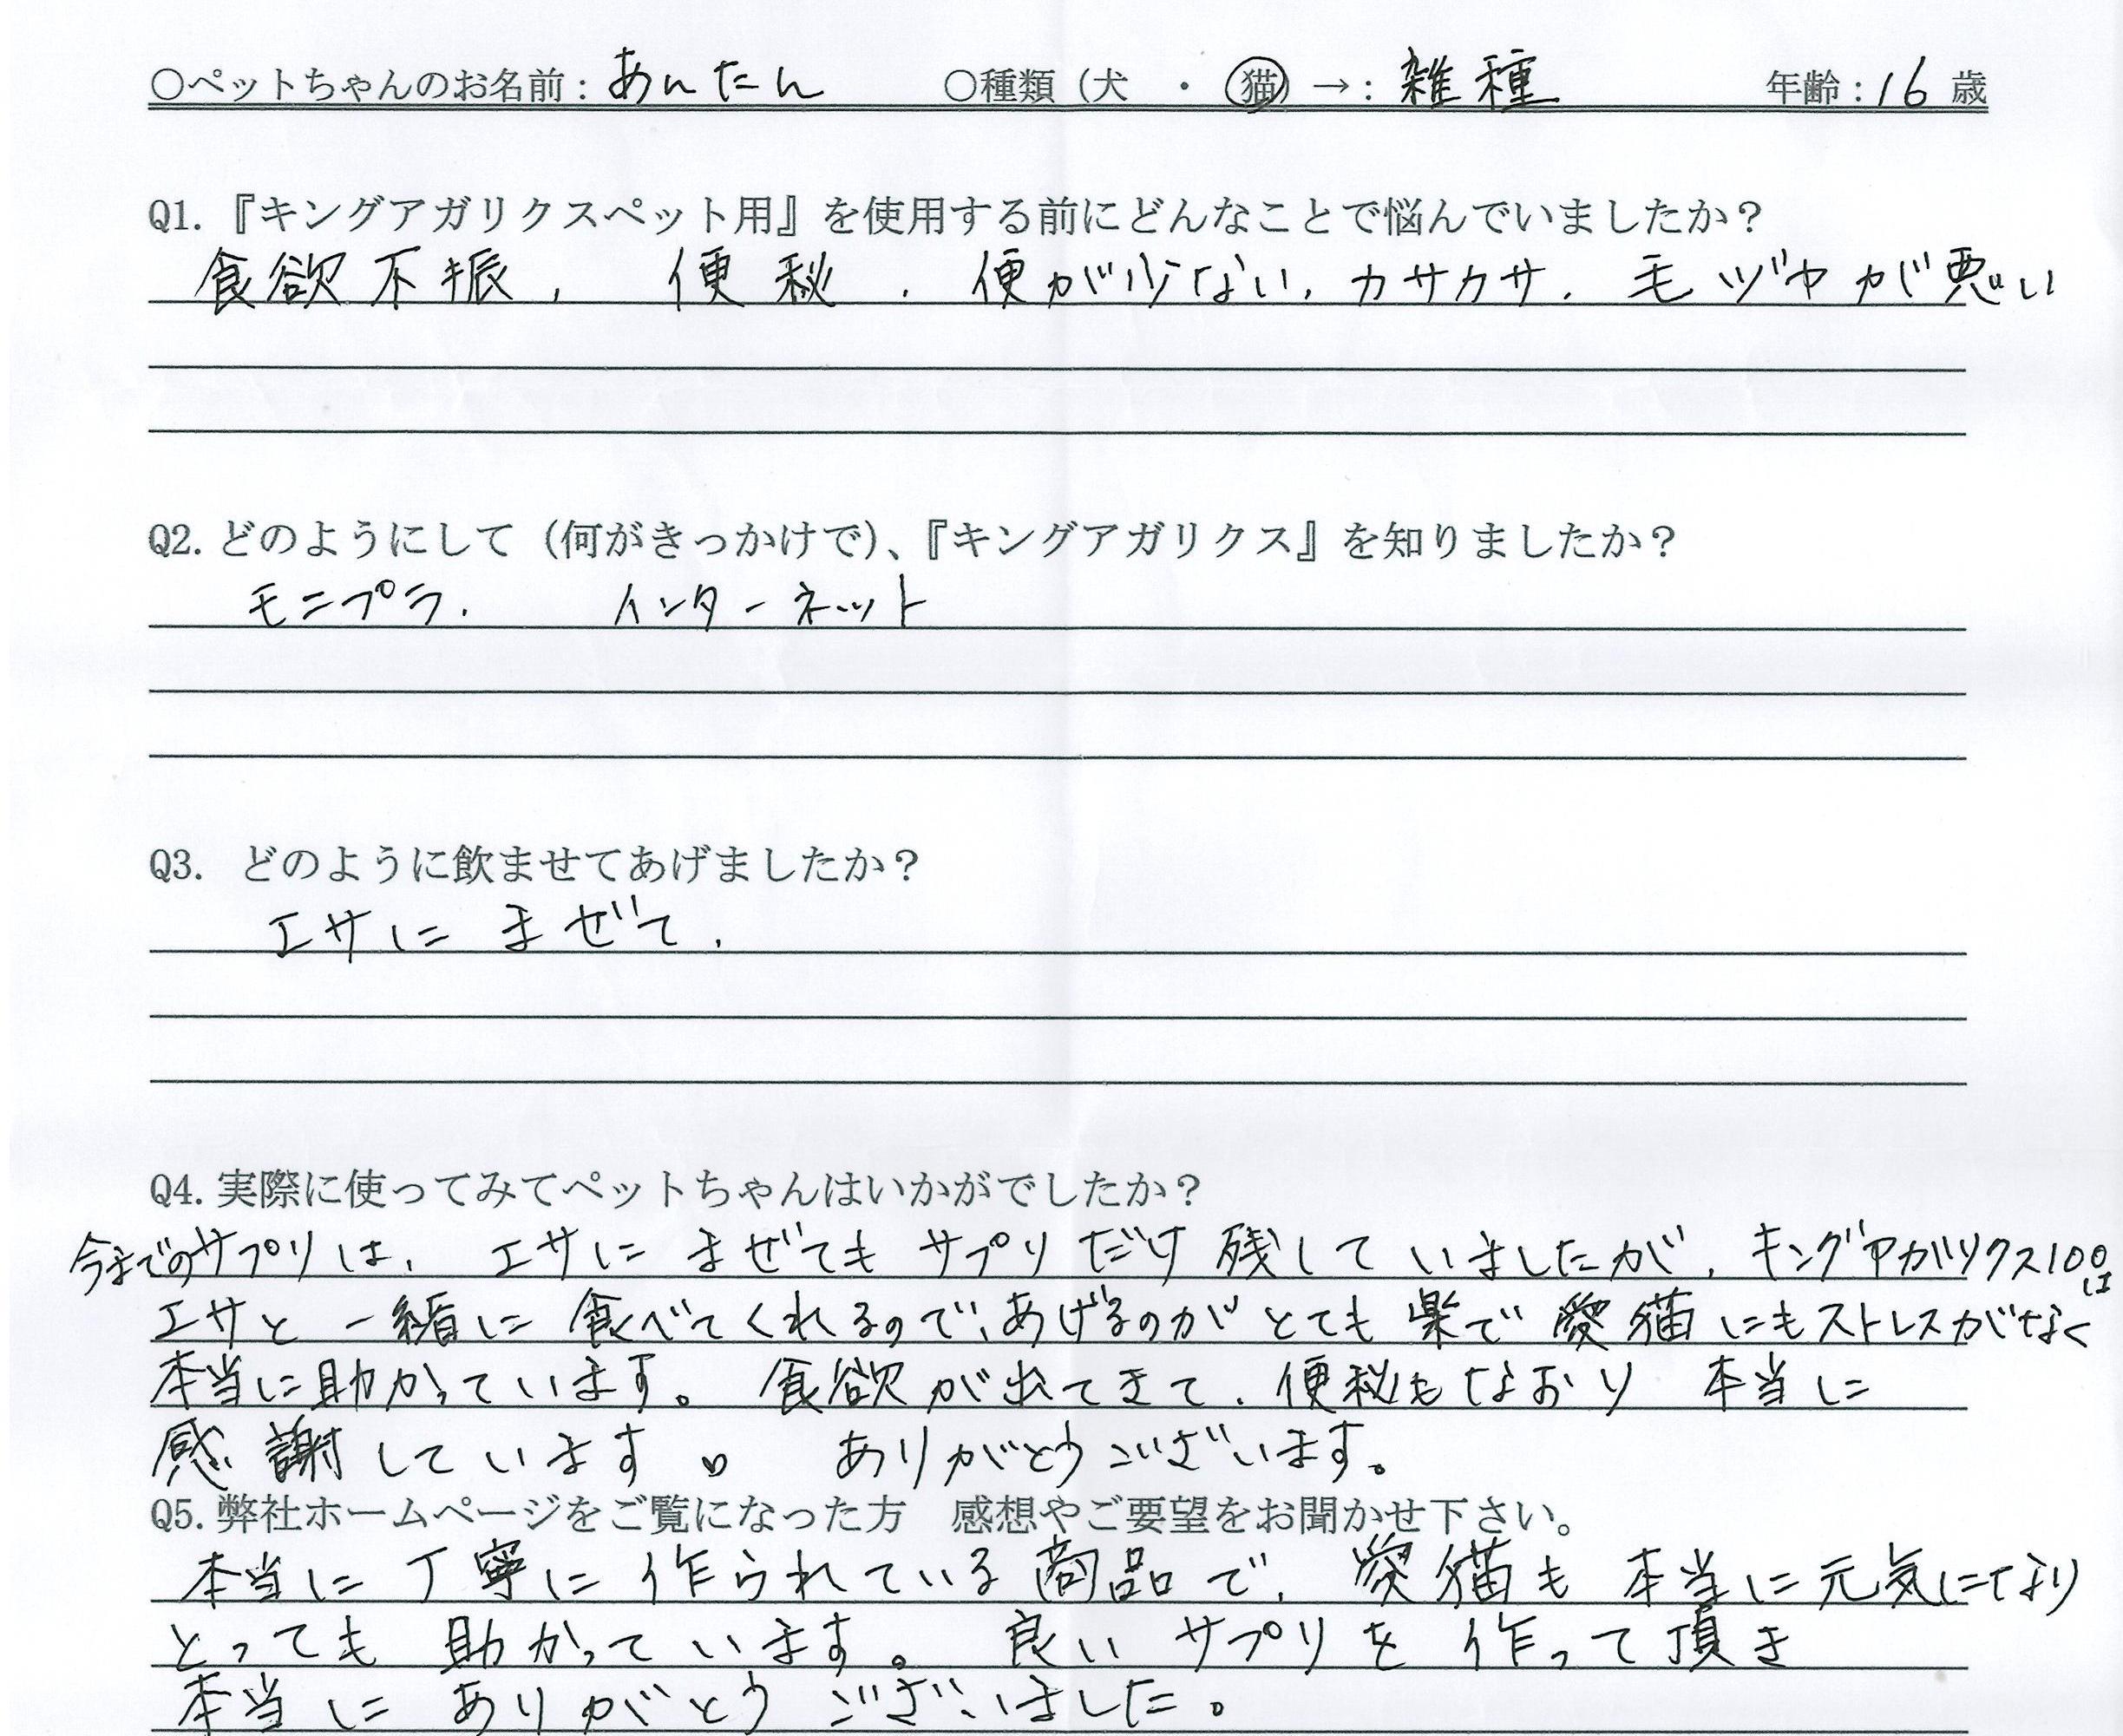 ○ペットちゃんのお名前：あんたん　○種類（犬　・　猫）→：雑種　年齢：16歳
Q1.『キングアガリクスペット用』を使用する前にどんなことで悩んでいましたか？
食欲不振、便秘、便が少ない、カサカサ、毛ヅヤが悪い
Q2.どのようにして（何がきっかけで）、『キングアガリクス』を知りましたか？
モニプラ、インターネット
Q3. どのように飲ませてあげましたか？
エサにまぜて、
Q4.実際に使ってみてペットちゃんはいかがでしたか？
今までのサプリは、エサにまぜてもサプリだけ残していましたが、キングアガリクス100は
エサと一緒に食べてくれるので、あげるのがとても楽で愛猫にもストレスがなく
本当に助かっています。食欲が出てきて、便秘もなおり 本当に
感謝しています。ありがとうございます。
Q5.弊社ホームページをご覧になった方　感想やご要望をお聞かせ下さい。
本当に丁寧に作られている商品で、愛猫も本当に元気になり
とっても助かっています。良いサプリを作って頂き
本当にありがとうございました。